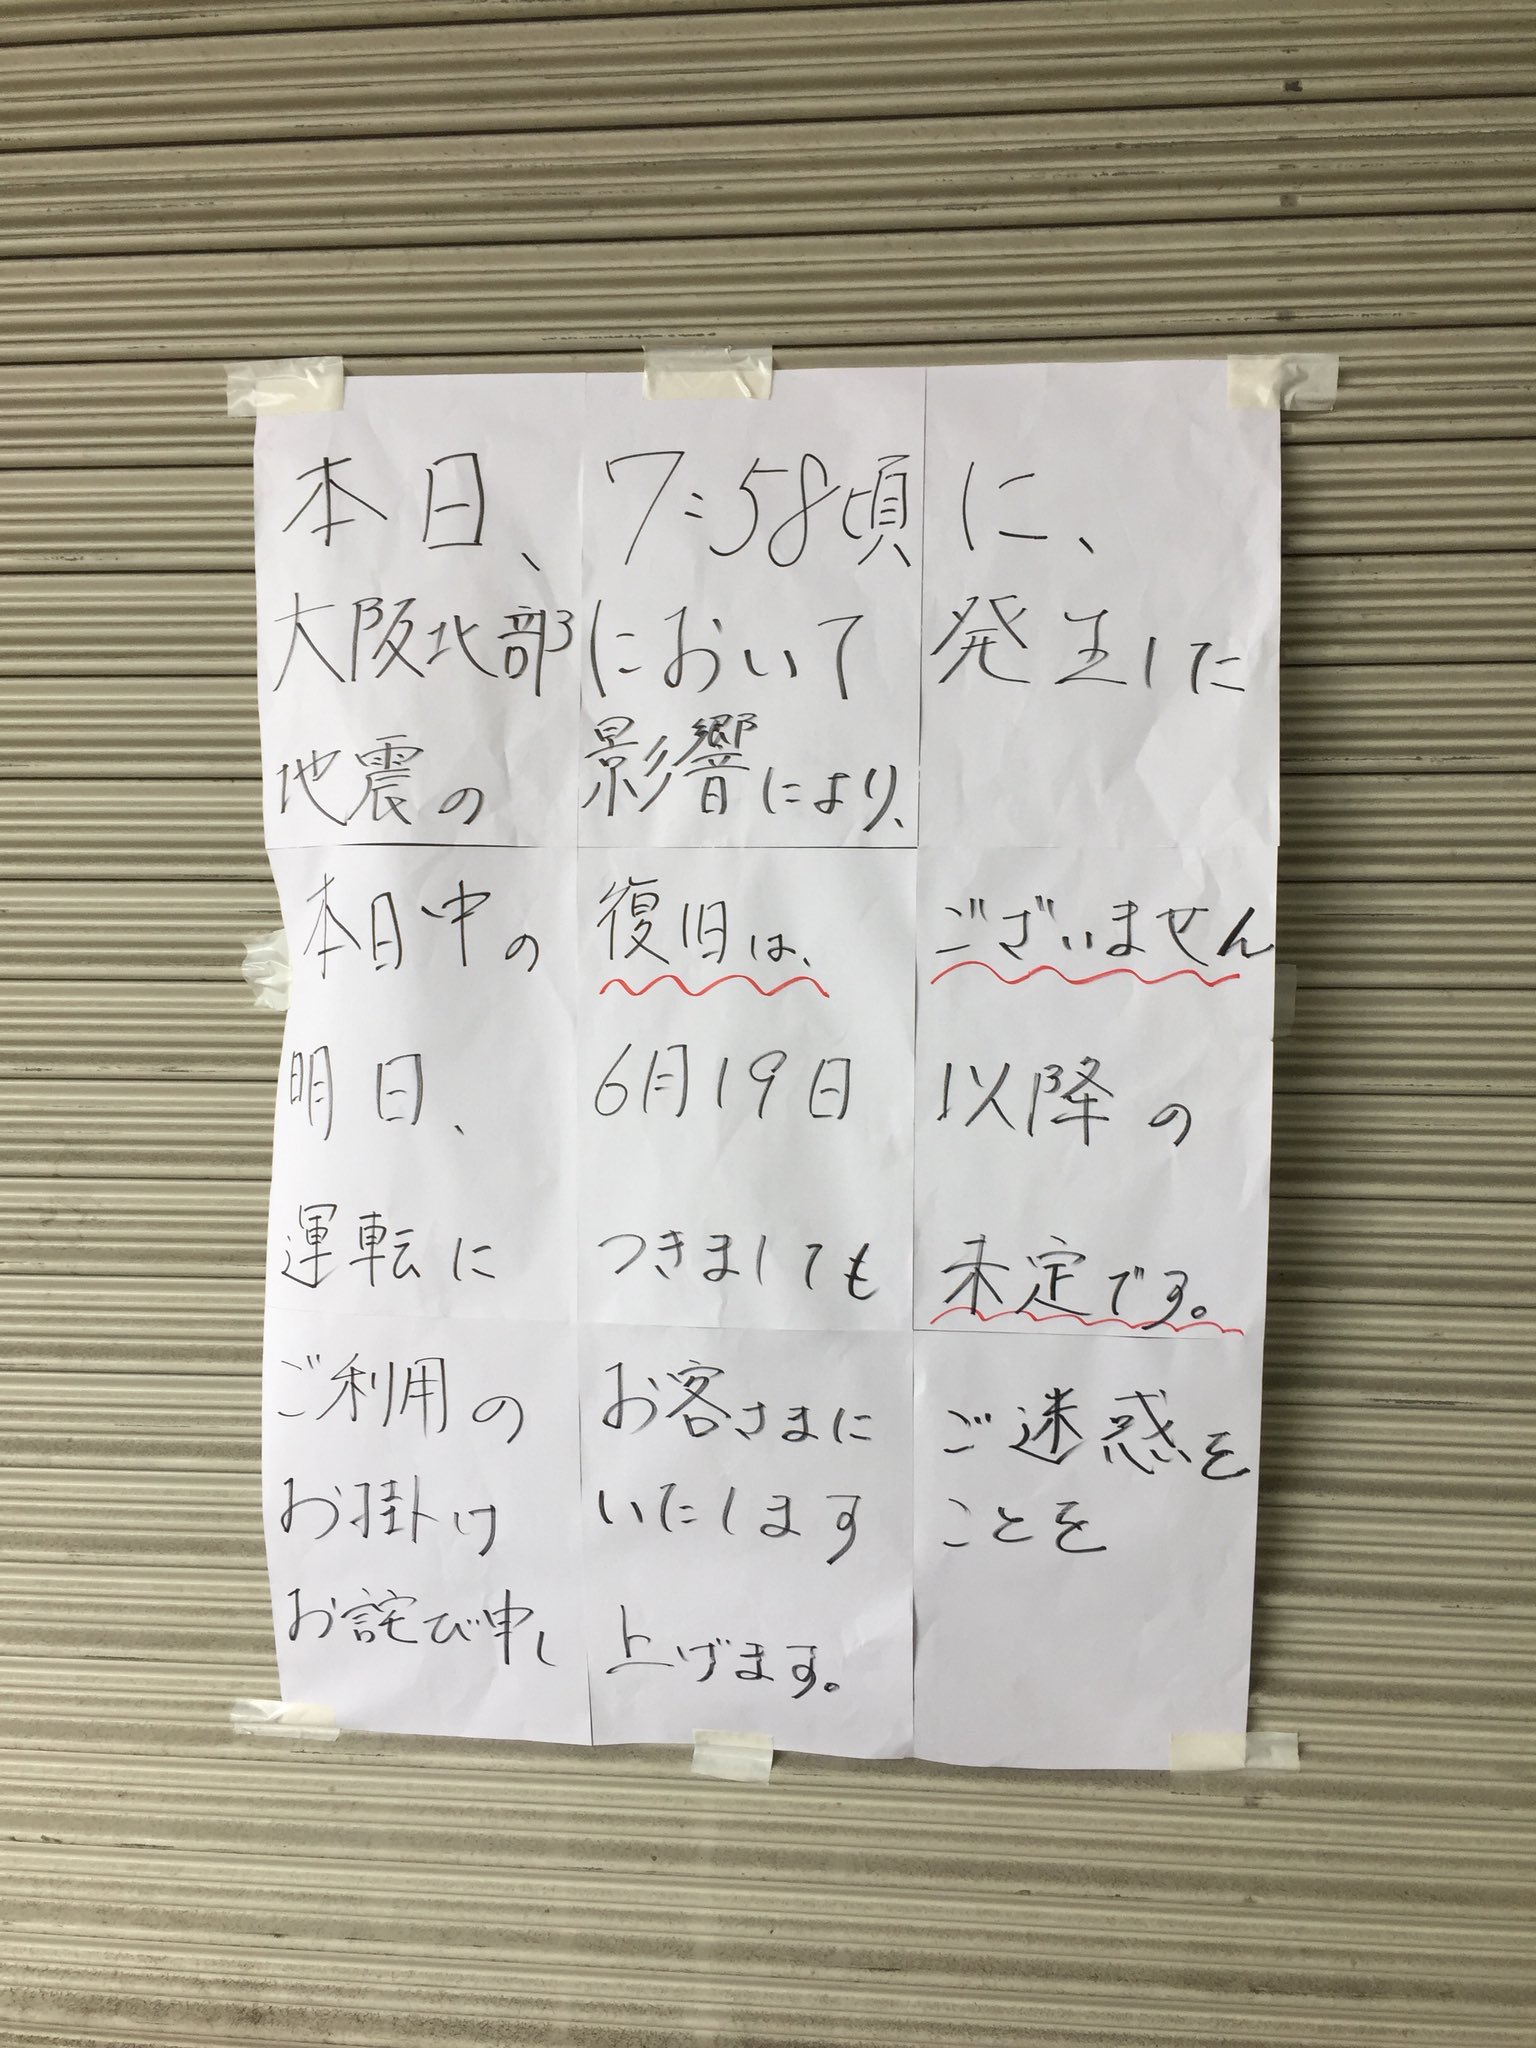 本日、7:58頃に、
大阪北部において発生した
地震の影響により、
本日中の復旧は、ございません
明日、6月19日以降の
運転につきましても未定です。
ご利用のお客さまにご迷惑を
お掛けいたしますことを
お詫び申し上げます。